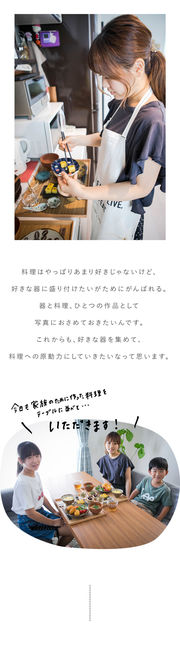 LIVE.
料理はやっぱりあまり好きじゃないけど、
好きな器に盛り付けたいがためにがんばれる。
器と料理、ひとつの作品として
写真におさめておきたいんです。
これからも、好きな器を集めて、
料理への原動力にしていきたいなって思います。
今日も家族のために作った料理を
テーブルに並べて…
いただきます!